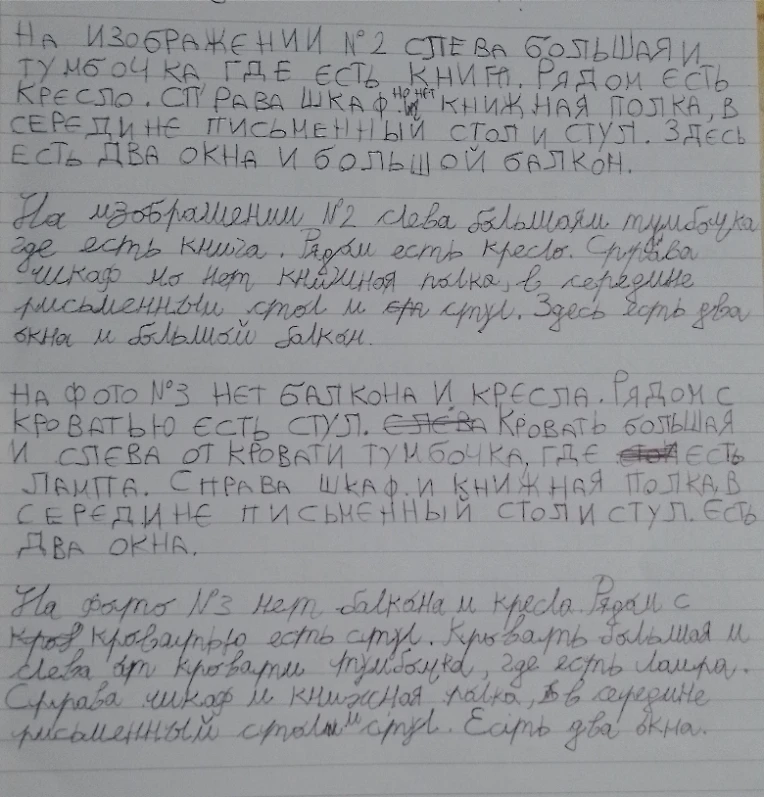 НА ИЗОБРАЖЕНИИ №2 СЛЕВА БОЛЬШАЯ И
ТУМБОЧКА ГДЕ ЕСТЬ КНИГА. РЯДОМ ЕСТЬ
КРЕСЛО. СПРАВА ШКАФ НО НЕТ КНИЖНАЯ ПОЛКА, В
СЕРЕДИНЕ ПИСЬМЕННЫЙ СТОЛ И СТУЛ. ЗДЕСЬ
ЕСТЬ ДВА ОКНА И БОЛЬШОЙ БАЛКОН.
На изображении №2 слева большая и тумбочка
где есть книга. Рядом есть кресло. Справа
шкаф но нет книжная полка, в середине
письменный стол и стул. Здесь есть два
окна и большой балкон.
НА ФОТО №3 НЕТ БАЛКОНА И КРЕСЛА. РЯДОМ С
КРОВАТЬЮ ЕСТЬ СТУЛ. СЛЕВА КРОВАТЬ БОЛЬШАЯ
И СЛЕВА ОТ КРОВАТИ ТУМБОЧКА, ГДЕ ЕСТЬ
ЛАМПА. СПРАВА ШКАФ И КНИЖНАЯ ПОЛКА, В
СЕРЕДИНЕ ПИСЬМЕННЫЙ СТОЛ И СТУЛ. ЕСТЬ
ДВА ОКНА.
На фото №3 нет балкона и кресла. Рядом с
кроватью есть стул. Кровать большая и
слева от кровати тумбочка, где есть лампа.
Справа шкаф и книжная полка, в середине
письменный стол и стул. Есть два окна.